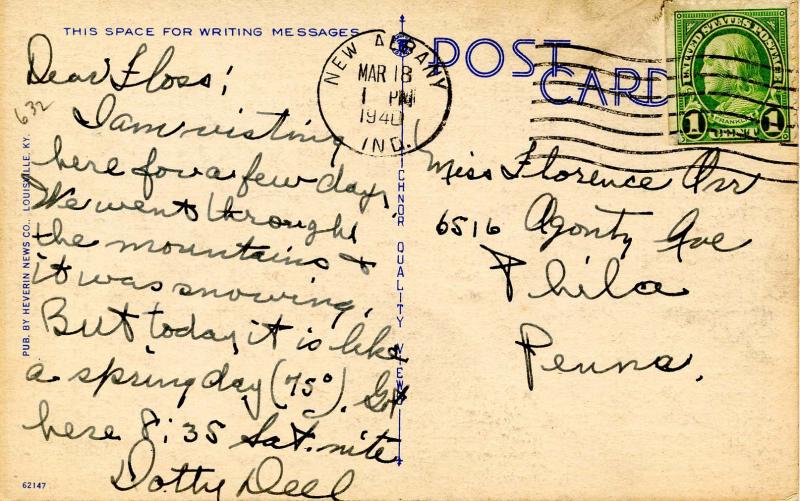 THIS SPACE FOR WRITING MESSAGES
Dear Floss;
I am visting
here for a few days,
We went through
the mountains &
it was snowing.
But today it is like
a spring day (75°). Got
here 8:35 Sat. nite
Dotty Dell
632
PUB. BY HEVERIN NEWS CO., LOUISVILLE, KY.
62147
NEW ALBANY
MAR 18
1 PM
1940
IND.
POST
CARD
UNITED STATES POSTAGE
FRANKLIN
1 1
Miss Florence Orr
6516 Agonty Ave
Phila
Penna.
TICHNOR QUALITY VIEWS